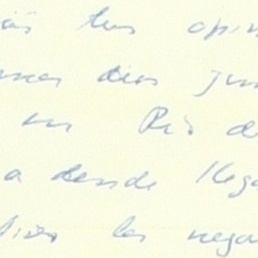 ás tus opin
unos dias jun
en Río d
a donde llega
los nega